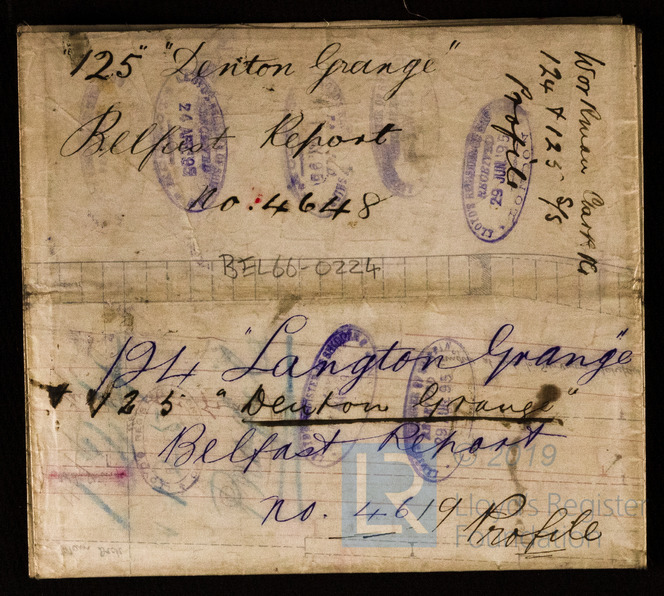 "125" "Denton Grange"
Belfast Report
No. 4648
Workman Clark &
124 & 125 S/S
Profile
29 JUN 95
BEL66-0224
124 "Langton Grange"
125 "Denton Grange"
Belfast Report
no. 4619 Profile
LR
© 2019
Lloyds Register
Foundation